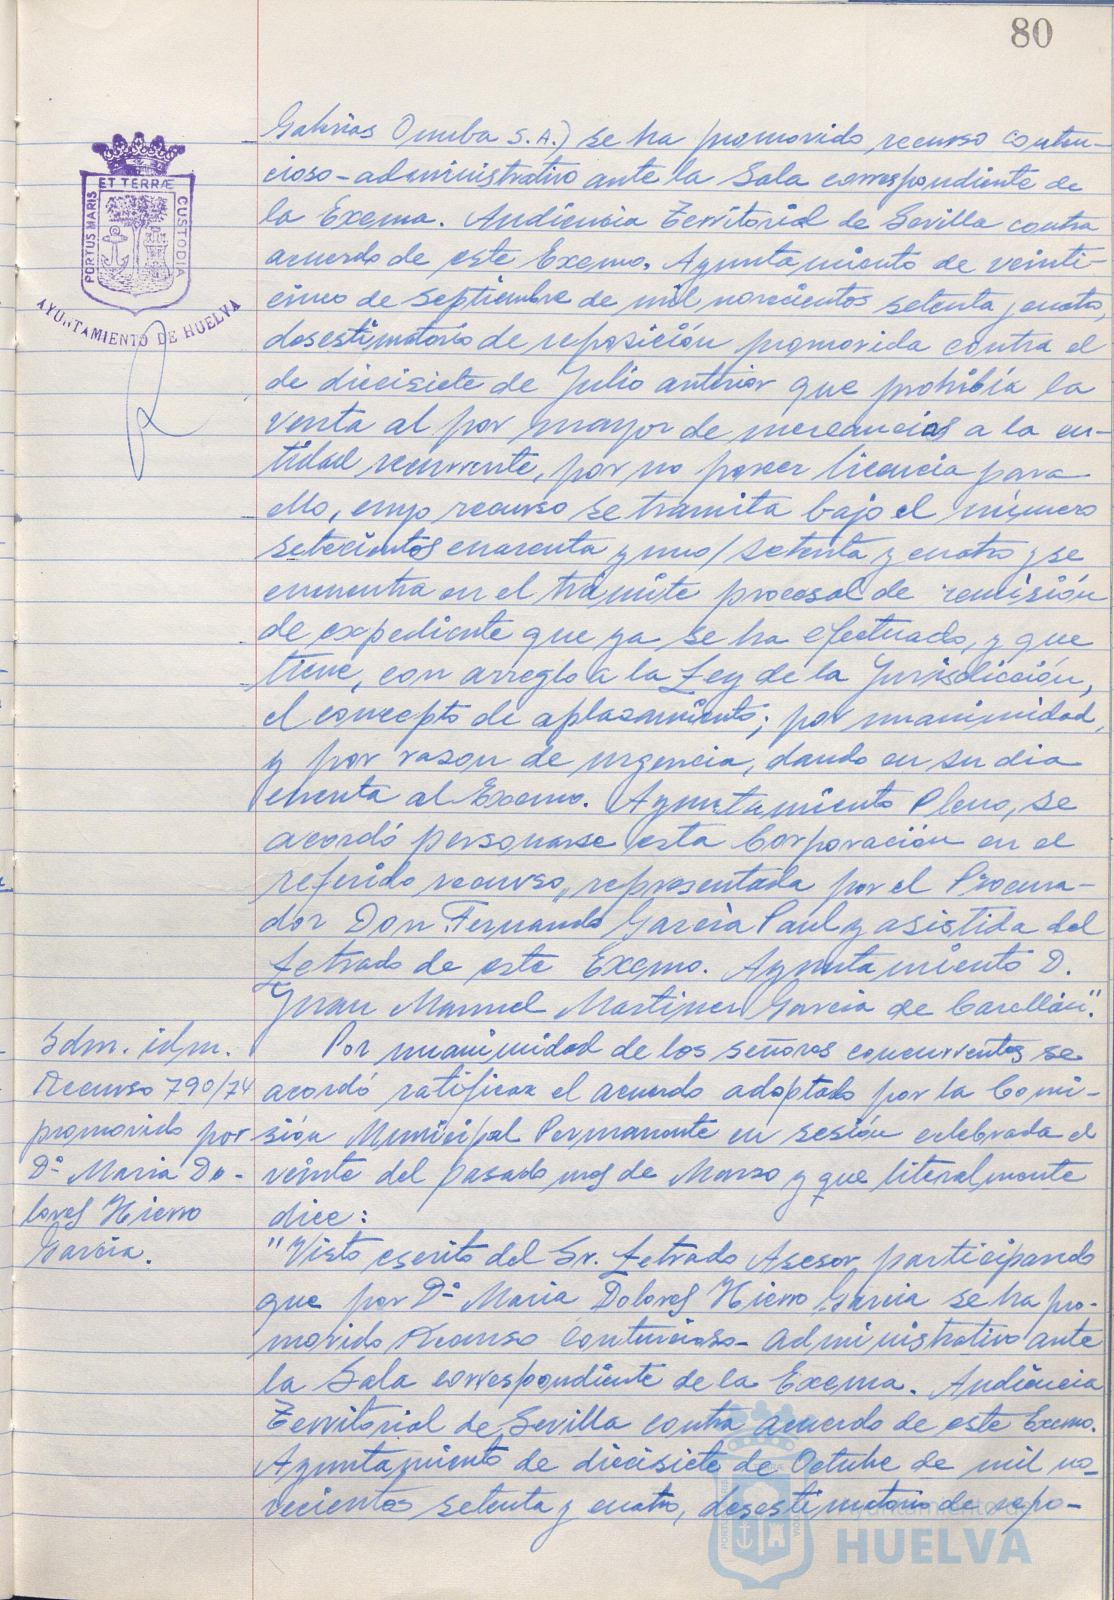 80
ET TERRÆ
PORTUS MARIS
CUSTODIA
AYUNTAMIENTO DE HUELVA
Galerias Onuba S.A.) se ha promovido recurso conten-
cioso-administrativo ante la Sala correspondiente de
la Excma. Audiencia Territorial de Sevilla contra
acuerdo de este Excmo. Ayuntamiento de veinti-
cinco de septiembre de mil novecientos setenta y cuatro,
desestimatorio de reposición promovida contra el
de diecisiete de Julio anterior que prohibía la
venta al por mayor de mercancias a la en-
tidad recurrente, por no poseer licencia para
ello, cuyo recurso se tramita bajo el número
setecientos cuarenta y uno/setenta y cuatro y se
encuentra en el trámite procesal de remisión
de expediente que ya se ha efectuado, y que
tiene, con arreglo a la Ley de la Jurisdicción,
el concepto de aplazamiento; por unanimidad,
y por razon de urgencia, dando en su dia
cuenta al Excmo. Ayuntamiento Pleno, se
acordó personarse esta Corporación en el
referido recurso, representada por el Procura-
dor Don Fernando García Paul y asistida del
Letrado de este Excmo. Ayuntamiento D.
Juan Manuel Martinez Garcia de Carellán".
Idm. idm.
Recurso 790/74
promovido por
Dª Maria Do-
lores Hierro
García.
Por unanimidad de los señores concurrentes se
acordó ratificar el acuerdo adoptado por la Comi-
sión Municipal Permanente en sesión celebrada el
veinte del pasado mes de Marzo y que literalmente
dice:
"Visto escrito del Sr. Letrado Asesor, participando
que por Dª Maria Dolores Hierro Garcia se ha pro-
movido Recurso Contencioso-administrativo ante
la Sala correspondiente de la Excma. Audiencia
Territorial de Sevilla contra acuerdo de este Excmo.
Ayuntamiento de diecisiete de Octubre de mil no-
vecientos setenta y cuatro, desestimatorio de repo-
Ayuntamiento de
HUELVA